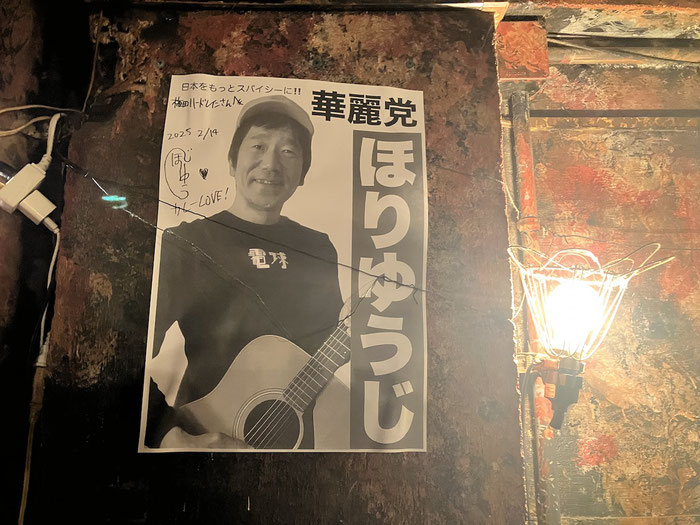 日本をもっとスパイシーに!!
梅田ハードレインさん江
華麗党
2025 2/14
ほりゆうじ
カレーLOVE!
電球
ほりゆうじ